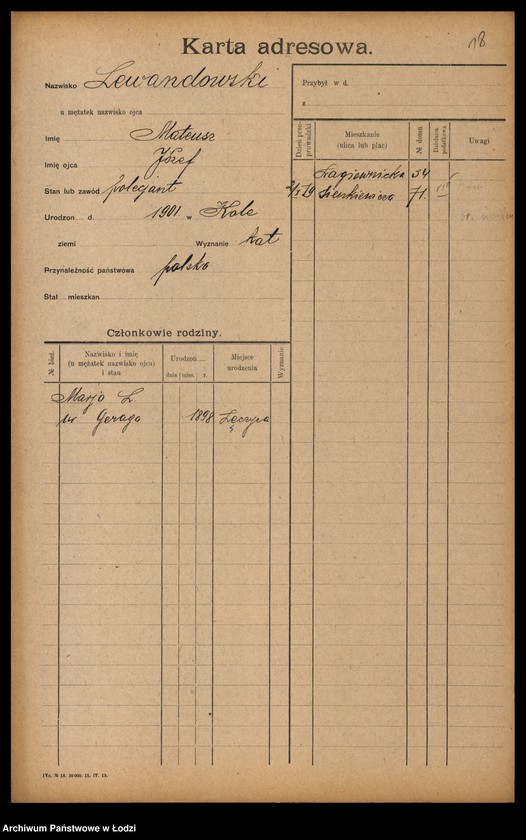 Karta adresowa.
18
Nazwisko Lewandowski
u mężatek nazwisko ojca
Imię Mateusz
Imię ojca Józef
Stan lub zawód policjant
Urodzon d. 1901 w Kole
ziemi Wyznanie kat
Przynależność państwowa polska
Stał mieszkan
Przybył w d.
z
Dzień przeprowadzki
Mieszkanie (ulica lub plac)
№ domu
Dzielnica podatkowa
Uwagi
Łagiewnicka 54
Sienkiewicza 71
Członkowie rodziny.
№ bież.
Nazwisko i imię
(u mężatek nazwisko ojca)
i stan
Urodzon
dnia mies. r.
Miejsce
urodzenia
Wyznanie
Marja L.
1898 Łęczyca
Archiwum Państwowe w Łodzi